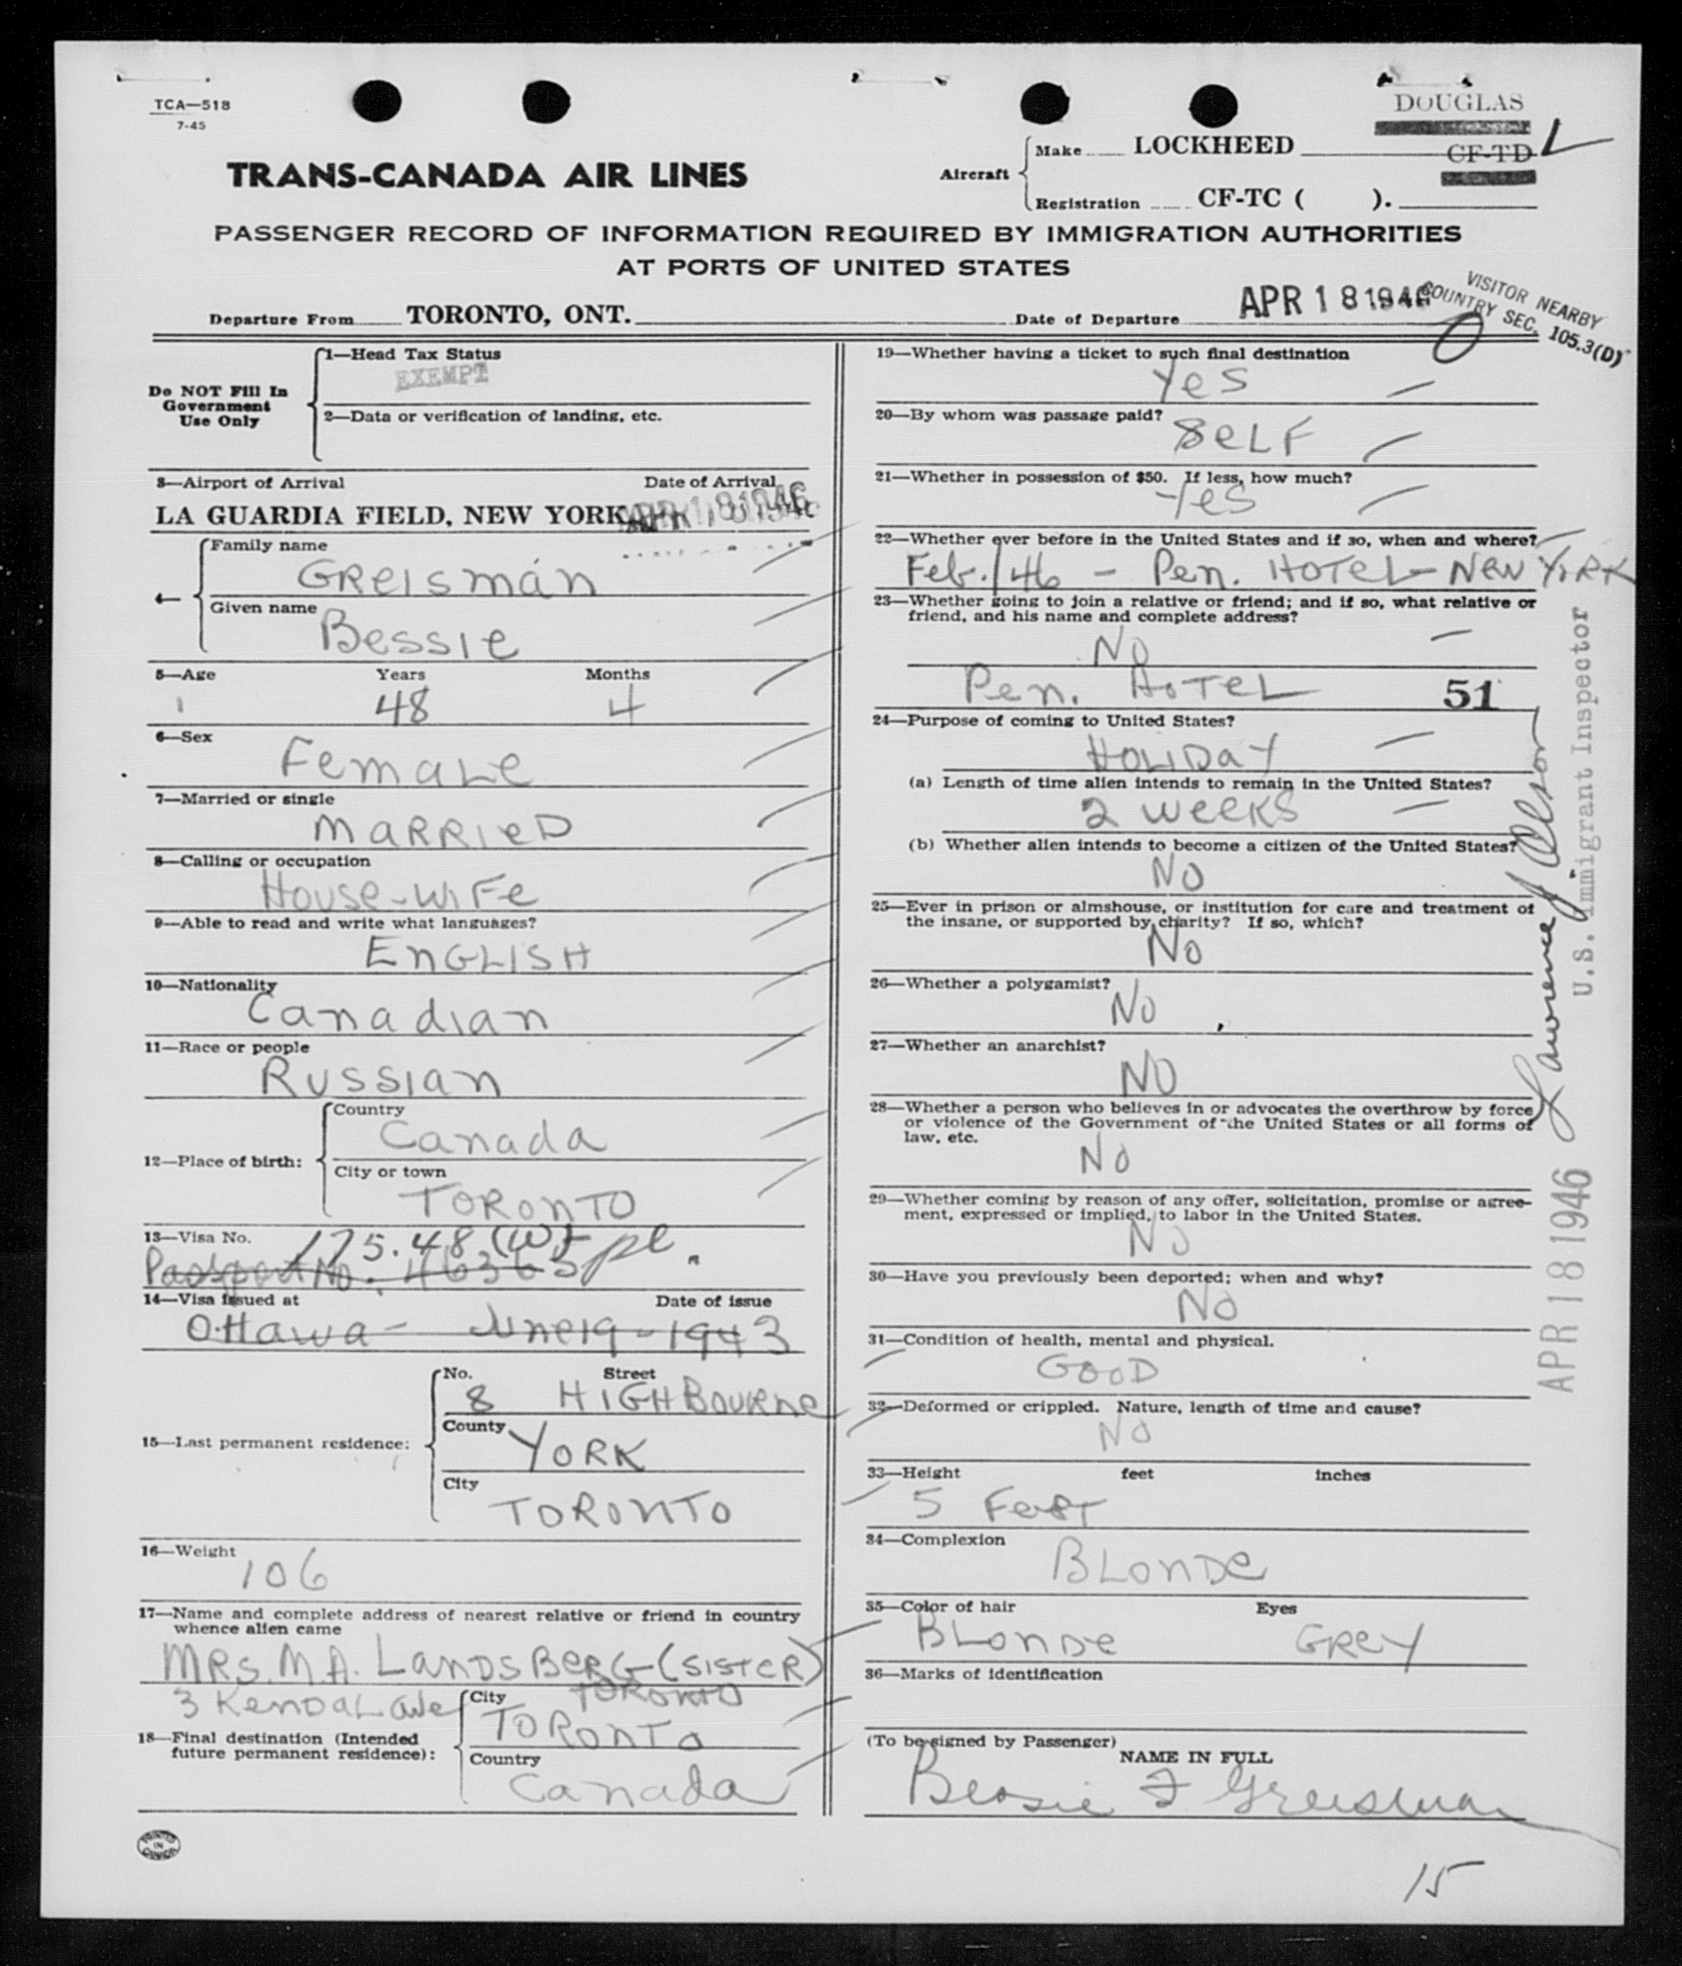 TCA—518
7-45
DOUGLAS
TRANS-CANADA AIR LINES
Aircraft
Make LOCKHEED
CF-TD L
Registration CF-TC ( ).
PASSENGER RECORD OF INFORMATION REQUIRED BY IMMIGRATION AUTHORITIES
AT PORTS OF UNITED STATES
VISITOR NEARBY
COUNTRY SEC. 105.3(D)
Departure From TORONTO, ONT. Date of Departure APR 18 1946
Do NOT Fill In
Government
Use Only
1—Head Tax Status
EXEMPT
2—Data or verification of landing, etc.
3—Airport of Arrival Date of Arrival
LA GUARDIA FIELD, NEW YORK APR 18 1946
4—
Family name
GReisman
Given name
Bessie
5—Age Years Months
48 4
6—Sex
Female
7—Married or single
MARRIED
8—Calling or occupation
House-wife
9—Able to read and write what languages?
ENGLISH
10—Nationality
Canadian
11—Race or people
Russian
12—Place of birth:
Country
Canada
City or town
TORONTO
13—Visa No. 175.48 (W)
Passport No. 46363
14—Visa issued at Date of issue
Ottawa - June 19 - 1943
15—Last permanent residence:
No. Street
8 HIGHBOURNE
County
YORK
City
TORONTO
16—Weight
106
17—Name and complete address of nearest relative or friend in country
whence alien came
MRS. M.A. LANDSBERG (SISTER)
3 KENDAL AVE TORONTO
18—Final destination (Intended
future permanent residence):
City
TORONTO
Country
Canada
PRINTED
IN
CANADA
19—Whether having a ticket to such final destination
Yes
20—By whom was passage paid?
SELF
21—Whether in possession of $50. If less, how much?
Yes
22—Whether ever before in the United States and if so, when and where?
Feb./46 - Pen. HOTEL - NEW YORK
23—Whether going to join a relative or friend; and if so, what relative or
friend, and his name and complete address?
No
Pen. HOTEL 51
24—Purpose of coming to United States?
HOLIDAY
(a) Length of time alien intends to remain in the United States?
2 weeks
(b) Whether alien intends to become a citizen of the United States?
No
25—Ever in prison or almshouse, or institution for care and treatment of
the insane, or supported by charity? If so, which?
No
26—Whether a polygamist?
No
27—Whether an anarchist?
NO
28—Whether a person who believes in or advocates the overthrow by force
or violence of the Government of the United States or all forms of
law, etc.
No
29—Whether coming by reason of any offer, solicitation, promise or agree-
ment, expressed or implied, to labor in the United States.
No
30—Have you previously been deported; when and why?
No
31—Condition of health, mental and physical.
GOOD
32—Deformed or crippled. Nature, length of time and cause?
No
33—Height feet inches
5 Feet
34—Complexion
BLONDE
35—Color of hair Eyes
BLONDE GREY
36—Marks of identification
(To be signed by Passenger)
NAME IN FULL
Bessie F Greisman
15
Lawrence J Olson
U.S. Immigrant Inspector
APR 18 1946